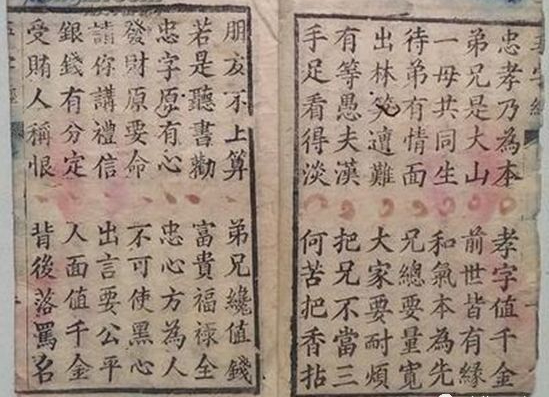 忠孝乃為本 孝字值千金
弟兄是大山 前世皆有緣
一母共同生 和氣本為先
待弟有情面 兄總要量寬
出林笑遭難 大家要耐煩
有等愚夫漢 把兄不當三
手足看得淡 何苦把香拈
朋友不上算 弟兄纔值錢
若是聽書勸 富貴福祿全
忠字原有心 忠心方為人
發財原要命 不可使黑心
請你講禮信 出言要公平
銀錢有分定 人面值千金
受賄人稱恨 背後落罵名